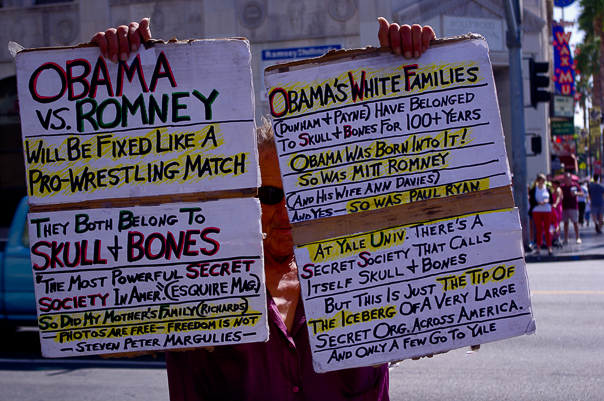 OBAMA
VS. ROMNEY
WILL BE FIXED LIKE A
PRO-WRESTLING MATCH
THEY BOTH BELONG TO
SKULL + BONES
"THE MOST POWERFUL SECRET
SOCIETY IN AMER." (ESQUIRE MAG.)
SO DID MY MOTHER'S FAMILY (RICHARDS)
PHOTOS ARE FREE - FREEDOM IS NOT
- STEVEN PETER MARGULIES -
OBAMA'S WHITE FAMILIES
(DUNHAM + PAYNE) HAVE BELONGED
TO SKULL + BONES FOR 100+ YEARS
OBAMA WAS BORN INTO IT!
SO WAS MITT ROMNEY
(AND HIS WIFE ANN DAVIES)
AND YES - SO WAS PAUL RYAN.
AT YALE UNIV. THERE'S A
SECRET SOCIETY THAT CALLS
ITSELF SKULL + BONES
BUT THIS IS JUST THE TIP OF
THE ICEBERG OF A VERY LARGE
SECRET ORG. ACROSS AMERICA.
AND ONLY A FEW GO TO YALE